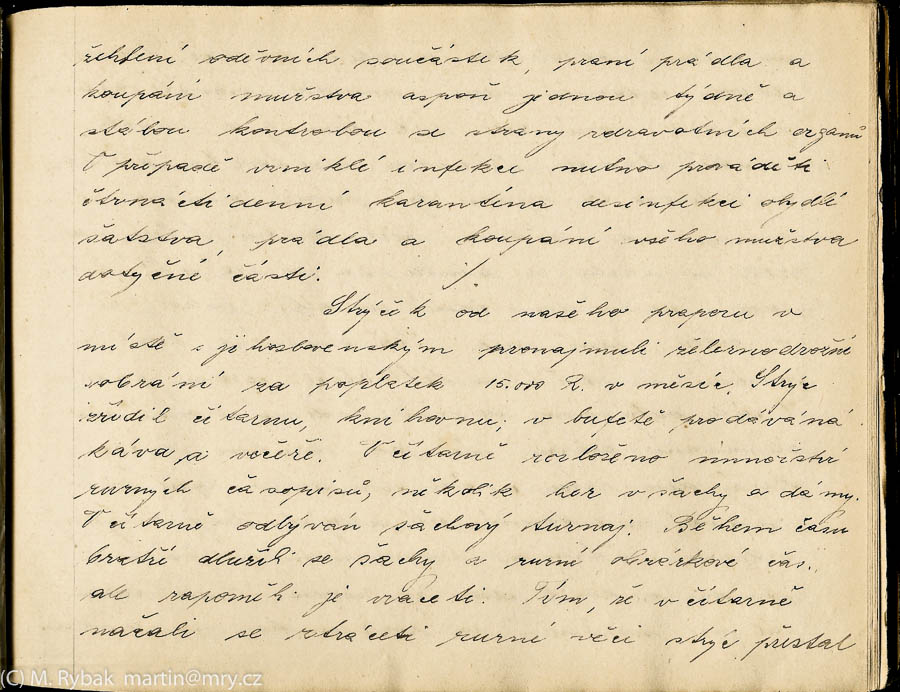 žehlení oděvních součástek, praní prádla a
koupání mužstva aspoň jednou týdně a
stálou kontrolou se strany zdravotních orgánů
V případě vzniklé infekce nutno prováděti
čtrnáctidenní karantína desinfekci obydlí
šatstva, prádla a koupání všeho mužstva
dotyčné části. ./.
Strýček od našeho praporu v
místě s jihoslovenským pronajmuli železnodrožní
sobrání za poplatek 15.000 R. v měsíc. Strýc
zřídil čítarnu, knihovnu; v bufetě prodávána
káva a večeře. V čítarně rozloženo množství
různých časopisů, několik her v šachy a dámy.
V čítarně odbýván šachový turnaj. Během času
bratří dlužili se šachy a různí obrázkové čas.,
ale zapoměli je vraceti. Tím, že v čítarně
načali se ztráceti různé věci strýc přestal
(C) M. Rybak martin@mry.cz